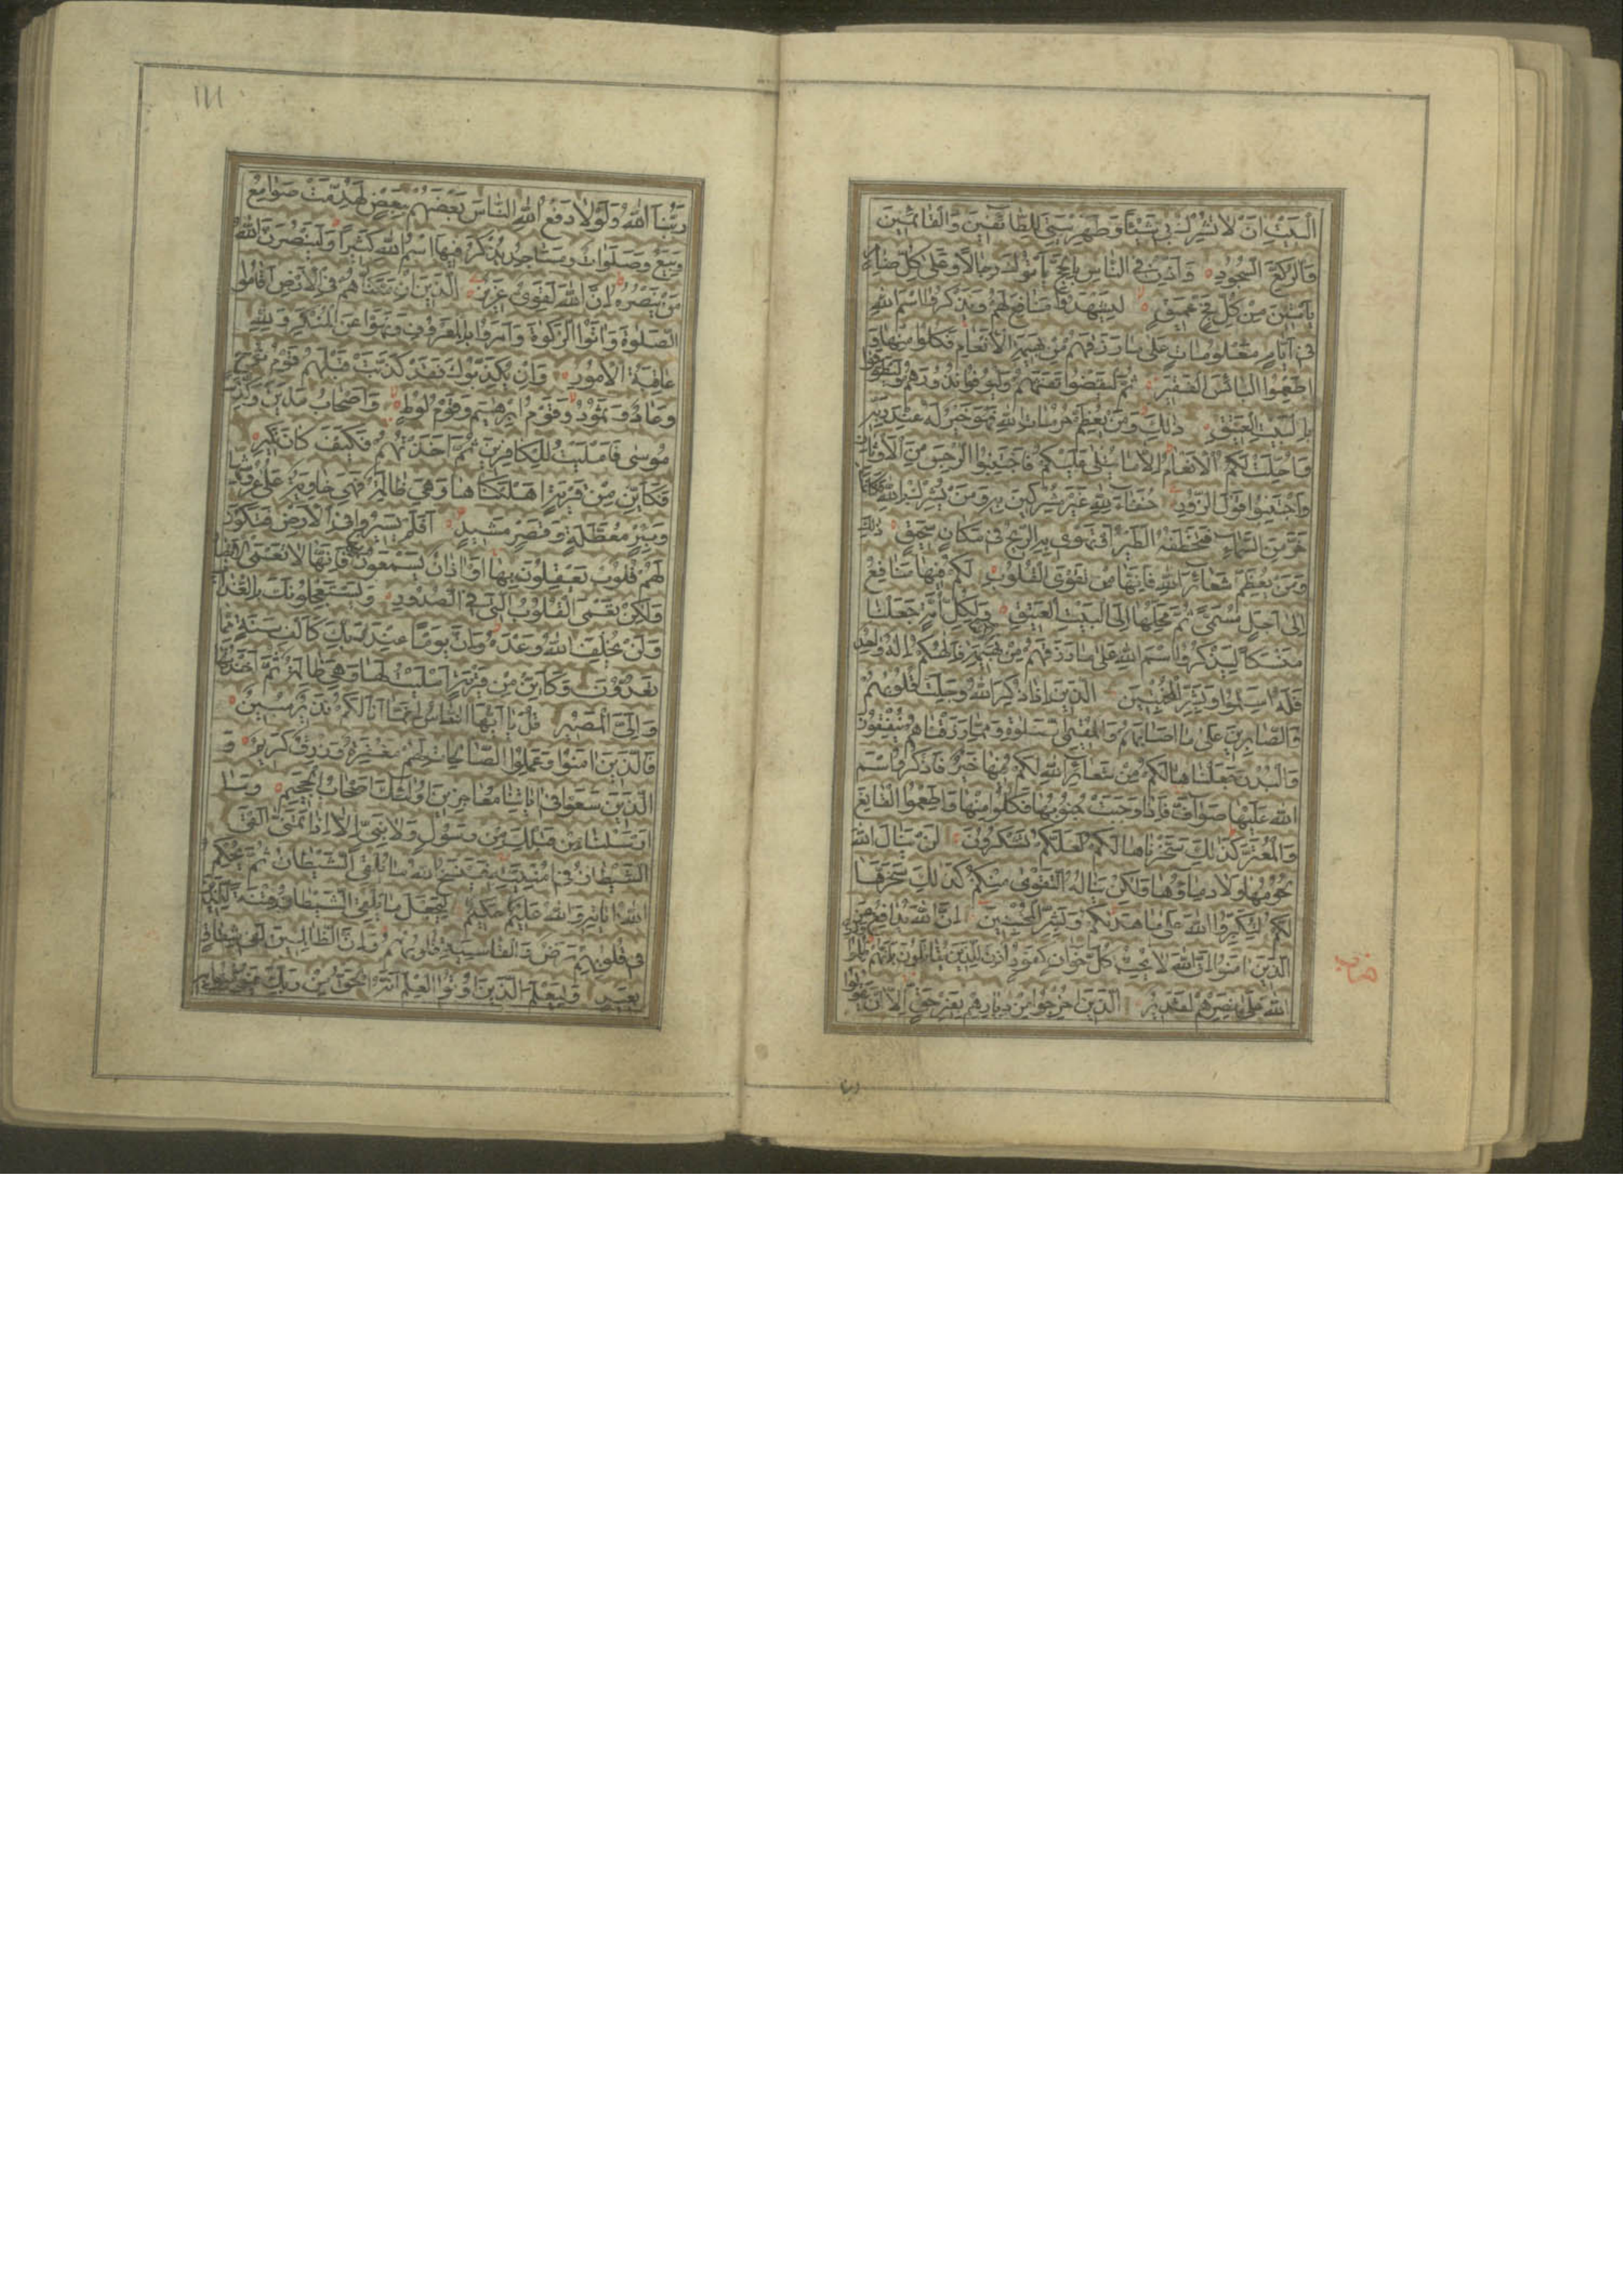 الْبَيْتِ اَنْ لَا تُشْرِكْ بى شَيْئًا وَطَهِّرْ بَيْتِىَ لِلطَّائِفينَ وَالْقَائِمينَ
وَالرُّكَّعِ السُّجُودِ وَاَذِّنْ فِى النَّاسِ بِالْحَجِّ يَاْتُوكَ رِجَالًا وَعَلى كُلِّ ضَامِرٍ
يَاْتينَ مِنْ كُلِّ فَجٍّ عَميقٍ لِيَشْهَدُوا مَنَافِعَ لَهُمْ وَيَذْكُرُوا اسْمَ اللهِ
فى اَيَّامٍ مَعْلُومَاتٍ عَلى مَا رَزَقَهُمْ مِنْ بَهيمَةِ الْاَنْعَامِ فَكُلُوا مِنْهَا وَ
اَطْعِمُوا الْبَائِسَ الْفَقيرَ ثُمَّ لْيَقْضُوا تَفَثَهُمْ وَلْيُوفُوا نُذُورَهُمْ وَلْيَطَّوَّفُوا
بِالْبَيْتِ الْعَتيقِ ذٰلِكَ وَمَنْ يُعَظِّمْ حُرُمَاتِ اللهِ فَهُوَ خَيْرٌ لَهُ عِنْدَ رَبِّه
وَاُحِلَّتْ لَكُمُ الْاَنْعَامُ اِلَّا مَا يُتْلى عَلَيْكُمْ فَاجْتَنِبُوا الرِّجْسَ مِنَ الْاَوْثَانِ
وَاجْتَنِبُوا قَوْلَ الزُّورِ حُنَفَاءَ لِلّٰهِ غَيْرَ مُشْرِكينَ بِه وَمَنْ يُشْرِكْ بِاللهِ فَكَاَنَّمَا
خَرَّ مِنَ السَّمَاءِ فَتَخْطَفُهُ الطَّيْرُ اَوْ تَهْوى بِهِ الرّيحُ فى مَكَانٍ سَحيقٍ ذٰلِكَ
وَمَنْ يُعَظِّمْ شَعَائِرَ اللهِ فَاِنَّهَا مِنْ تَقْوَى الْقُلُوبِ لَكُمْ فيهَا مَنَافِعُ
اِلى اَجَلٍ مُسَمًّى ثُمَّ مَحِلُّهَا اِلَى الْبَيْتِ الْعَتيقِ وَلِكُلِّ اُمَّةٍ جَعَلْنَا
مَنْسَكًا لِيَذْكُرُوا اسْمَ اللهِ عَلى مَا رَزَقَهُمْ مِنْ بَهيمَةِ فَاِلٰهُكُمْ اِلٰهٌ وَاحِدٌ
فَلَهُ اَسْلِمُوا وَبَشِّرِ الْمُخْبِتينَ الَّذينَ اِذَا ذُكِرَ اللهُ وَجِلَتْ قُلُوبُهُمْ
وَالصَّابِرينَ عَلى مَا اَصَابَهُمْ وَالْمُقيمِى الصَّلٰوةِ وَمِمَّا رَزَقْنَاهُمْ يُنْفِقُونَ
وَالْبُدْنَ جَعَلْنَاهَا لَكُمْ مِنْ شَعَائِرِ اللهِ لَكُمْ فيهَا خَيْرٌ فَاذْكُرُوا اسْمَ
اللهِ عَلَيْهَا صَوَافَّ فَاِذَا وَجَبَتْ جُنُوبُهَا فَكُلُوا مِنْهَا وَاَطْعِمُوا الْقَانِعَ
وَالْمُعْتَرَّ كَذٰلِكَ سَخَّرْنَاهَا لَكُمْ لَعَلَّكُمْ تَشْكُرُونَ لَنْ يَنَالَ اللهَ
لُحُومُهَا وَلَا دِمَاؤُهَا وَلٰكِنْ يَنَالُهُ التَّقْوى مِنْكُمْ كَذٰلِكَ سَخَّرَهَا
لَكُمْ لِتُكَبِّرُوا اللهَ عَلى مَا هَدٰيكُمْ وَبَشِّرِ الْمُحْسِنينَ اِنَّ اللهَ يُدَافِعُ عَنِ
الَّذينَ اٰمَنُوا اِنَّ اللهَ لَا يُحِبُّ كُلَّ خَوَّانٍ كَفُورٍ اُذِنَ لِلَّذينَ يُقَاتَلُونَ بِاَنَّهُمْ ظُلِمُوا وَاِنَّ
اللهَ عَلى نَصْرِهِمْ لَقَديرٌ الَّذينَ اُخْرِجُوا مِنْ دِيَارِهِمْ بِغَيْرِ حَقٍّ اِلَّا اَنْ يَقُولُوا
حزب
١١١
رَبُّنَا اللهُ وَلَوْلَا دَفْعُ اللهِ النَّاسَ بَعْضَهُمْ بِبَعْضٍ لَهُدِّمَتْ صَوَامِعُ
وَبِيَعٌ وَصَلَوَاتٌ وَمَسَاجِدُ يُذْكَرُ فيهَا اسْمُ اللهِ كَثيرًا وَلَيَنْصُرَنَّ اللهُ
مَنْ يَنْصُرُهُ اِنَّ اللهَ لَقَوِىٌّ عَزيزٌ الَّذينَ اِنْ مَكَّنَّاهُمْ فِى الْاَرْضِ اَقَامُوا
الصَّلٰوةَ وَاٰتَوُا الزَّكٰوةَ وَاَمَرُوا بِالْمَعْرُوفِ وَنَهَوْا عَنِ الْمُنْكَرِ وَلِلّٰهِ
عَاقِبَةُ الْاُمُورِ وَاِنْ يُكَذِّبُوكَ فَقَدْ كَذَّبَتْ قَبْلَهُمْ قَوْمُ نُوحٍ
وَعَادٌ وَثَمُودُ وَقَوْمُ اِبْرٰهيمَ وَقَوْمُ لُوطٍ وَاَصْحَابُ مَدْيَنَ وَكُذِّبَ
مُوسى فَاَمْلَيْتُ لِلْكَافِرينَ ثُمَّ اَخَذْتُهُمْ فَكَيْفَ كَانَ نَكيرِ
فَكَاَيِّنْ مِنْ قَرْيَةٍ اَهْلَكْنَاهَا وَهِىَ ظَالِمَةٌ فَهِىَ خَاوِيَةٌ عَلى عُرُوشِهَا
وَبِئْرٍ مُعَطَّلَةٍ وَقَصْرٍ مَشيدٍ اَفَلَمْ يَسيرُوا فِى الْاَرْضِ فَتَكُونَ
لَهُمْ قُلُوبٌ يَعْقِلُونَ بِهَا اَوْ اٰذَانٌ يَسْمَعُونَ بِهَا فَاِنَّهَا لَا تَعْمَى الْاَبْصَارُ
وَلٰكِنْ تَعْمَى الْقُلُوبُ الَّتى فِى الصُّدُورِ وَيَسْتَعْجِلُونَكَ بِالْعَذَابِ
وَلَنْ يُخْلِفَ اللهُ وَعْدَهُ وَاِنَّ يَوْمًا عِنْدَ رَبِّكَ كَاَلْفِ سَنَةٍ مِمَّا
تَعُدُّونَ وَكَاَيِّنْ مِنْ قَرْيَةٍ اَمْلَيْتُ لَهَا وَهِىَ ظَالِمَةٌ ثُمَّ اَخَذْتُهَا
وَاِلَىَّ الْمَصيرُ قُلْ يَا اَيُّهَا النَّاسُ اِنَّمَا اَنَا لَكُمْ نَذيرٌ مُبينٌ
فَالَّذينَ اٰمَنُوا وَعَمِلُوا الصَّالِحَاتِ لَهُمْ مَغْفِرَةٌ وَرِزْقٌ كَريمٌ وَ
الَّذينَ سَعَوْا فى اٰيَاتِنَا مُعَاجِزينَ اُولٰئِكَ اَصْحَابُ الْجَحيمِ وَمَا
اَرْسَلْنَا مِنْ قَبْلِكَ مِنْ رَسُولٍ وَلَا نَبِىٍّ اِلَّا اِذَا تَمَنّى اَلْقَى
الشَّيْطَانُ فى اُمْنِيَّتِه فَيَنْسَخُ اللهُ مَا يُلْقِى الشَّيْطَانُ ثُمَّ يُحْكِمُ
اللهُ اٰيَاتِه وَاللهُ عَليمٌ حَكيمٌ لِيَجْعَلَ مَا يُلْقِى الشَّيْطَانُ فِتْنَةً لِلَّذينَ
فى قُلُوبِهِمْ مَرَضٌ وَالْقَاسِيَةِ قُلُوبُهُمْ وَاِنَّ الظَّالِمينَ لَفى شِقَاقٍ
بَعيدٍ وَلِيَعْلَمَ الَّذينَ اُوتُوا الْعِلْمَ اَنَّهُ الْحَقُّ مِنْ رَبِّكَ